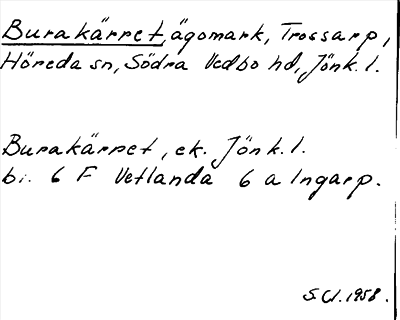 Burakärret, ägomark, Trossarp,
Höreda sn, Södra Vedbo hd, Jönk. l.
Burakärret, ek. Jönk. l.
bl. 6 F Vetlanda 6 a Ingarp.
S.Cl. 1958.